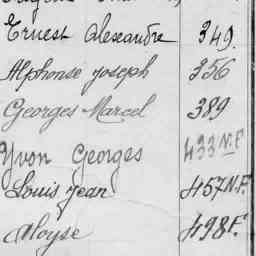 Ernest Alexandre 349.
Alphonse Joseph 356
Georges Marcel 389
Yvon Georges 433 N.F.
Louis Jean 457 N.F.
Aloyse 498 F.